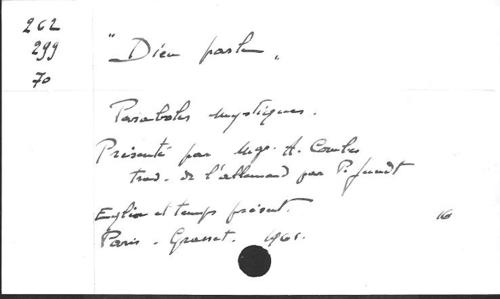 262
299
70
"Dieu parle"
Paraboles mystiques.
Présenté par Mgr. A. Combes
trad. de l'allemand par P. Jundt
Eglise et temps présent.
16
Paris - Grasset. 196